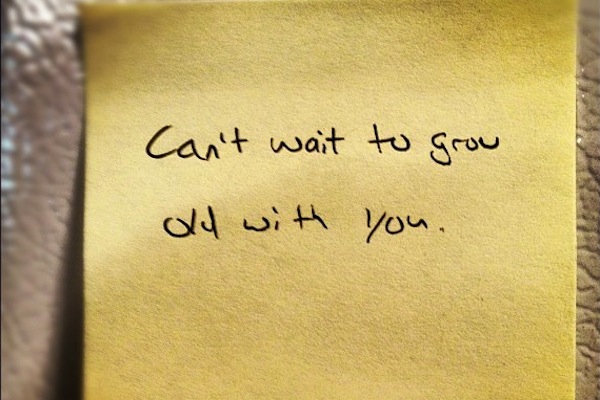 Can't wait to grow
old with you.